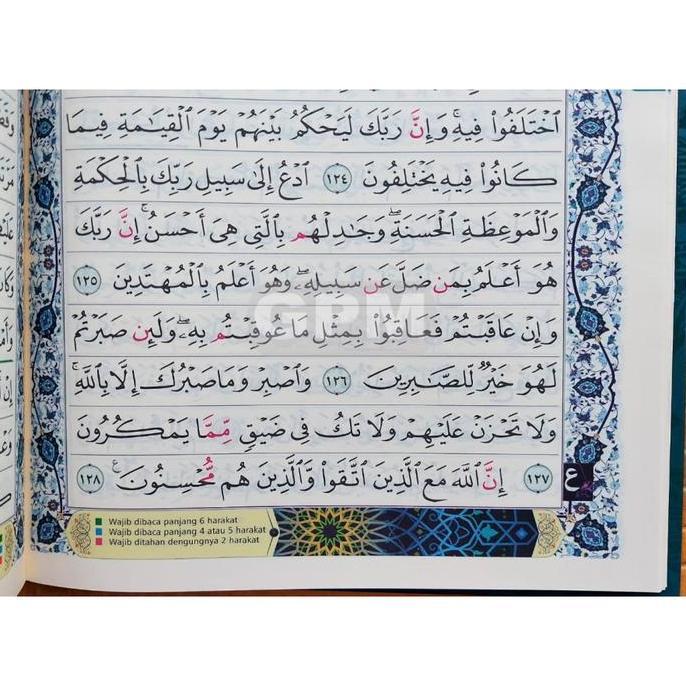 ٱخۡتَلَفُواْ فِيهِۚ وَإِنَّ رَبَّكَ لَيَحۡكُمُ بَيۡنَهُمۡ يَوۡمَ ٱلۡقِيَٰمَةِ فِيمَا
كَانُواْ فِيهِ يَخۡتَلِفُونَ ١٢٤ ٱدۡعُ إِلَىٰ سَبِيلِ رَبِّكَ بِٱلۡحِكۡمَةِ
وَٱلۡمَوۡعِظَةِ ٱلۡحَسَنَةِۖ وَجَٰدِلۡهُم بِٱلَّتِي هِيَ أَحۡسَنُۚ إِنَّ رَبَّكَ
هُوَ أَعۡلَمُ بِمَن ضَلَّ عَن سَبِيلِهِۦ وَهُوَ أَعۡلَمُ بِٱلۡمُهۡتَدِينَ ١٢٥
وَإِنۡ عَاقَبۡتُمۡ فَعَاقِبُواْ بِمِثۡلِ مَا عُوقِبۡتُم بِهِۦۖ وَلَئِن صَبَرۡتُمۡ
لَهُوَ خَيۡرٞ لِّلصَّٰبِرِينَ ١٢٦ وَٱصۡبِرۡ وَمَا صَبۡرُكَ إِلَّا بِٱللَّهِۚ
وَلَا تَحۡزَنۡ عَلَيۡهِمۡ وَلَا تَكُ فِي ضَيۡقٖ مِّمَّا يَمۡكُرُونَ
١٢٧ إِنَّ ٱللَّهَ مَعَ ٱلَّذِينَ ٱتَّقَواْ وَّٱلَّذِينَ هُم مُّحۡسِنُونَ ١٢٨
ع
Wajib dibaca panjang 6 harakat
Wajib dibaca panjang 4 atau 5 harakat
Wajib ditahan dengungnya 2 harakat
GPM